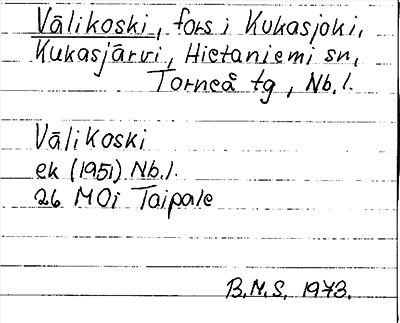 Välikoski, fors i Kukasjoki,
Kukasjärvi, Hietaniemi sn,
Torneå tg, Nb.l.
Välikoski
ek (1951) Nb.l.
26 MOi Taipale
B.N.S. 1973.